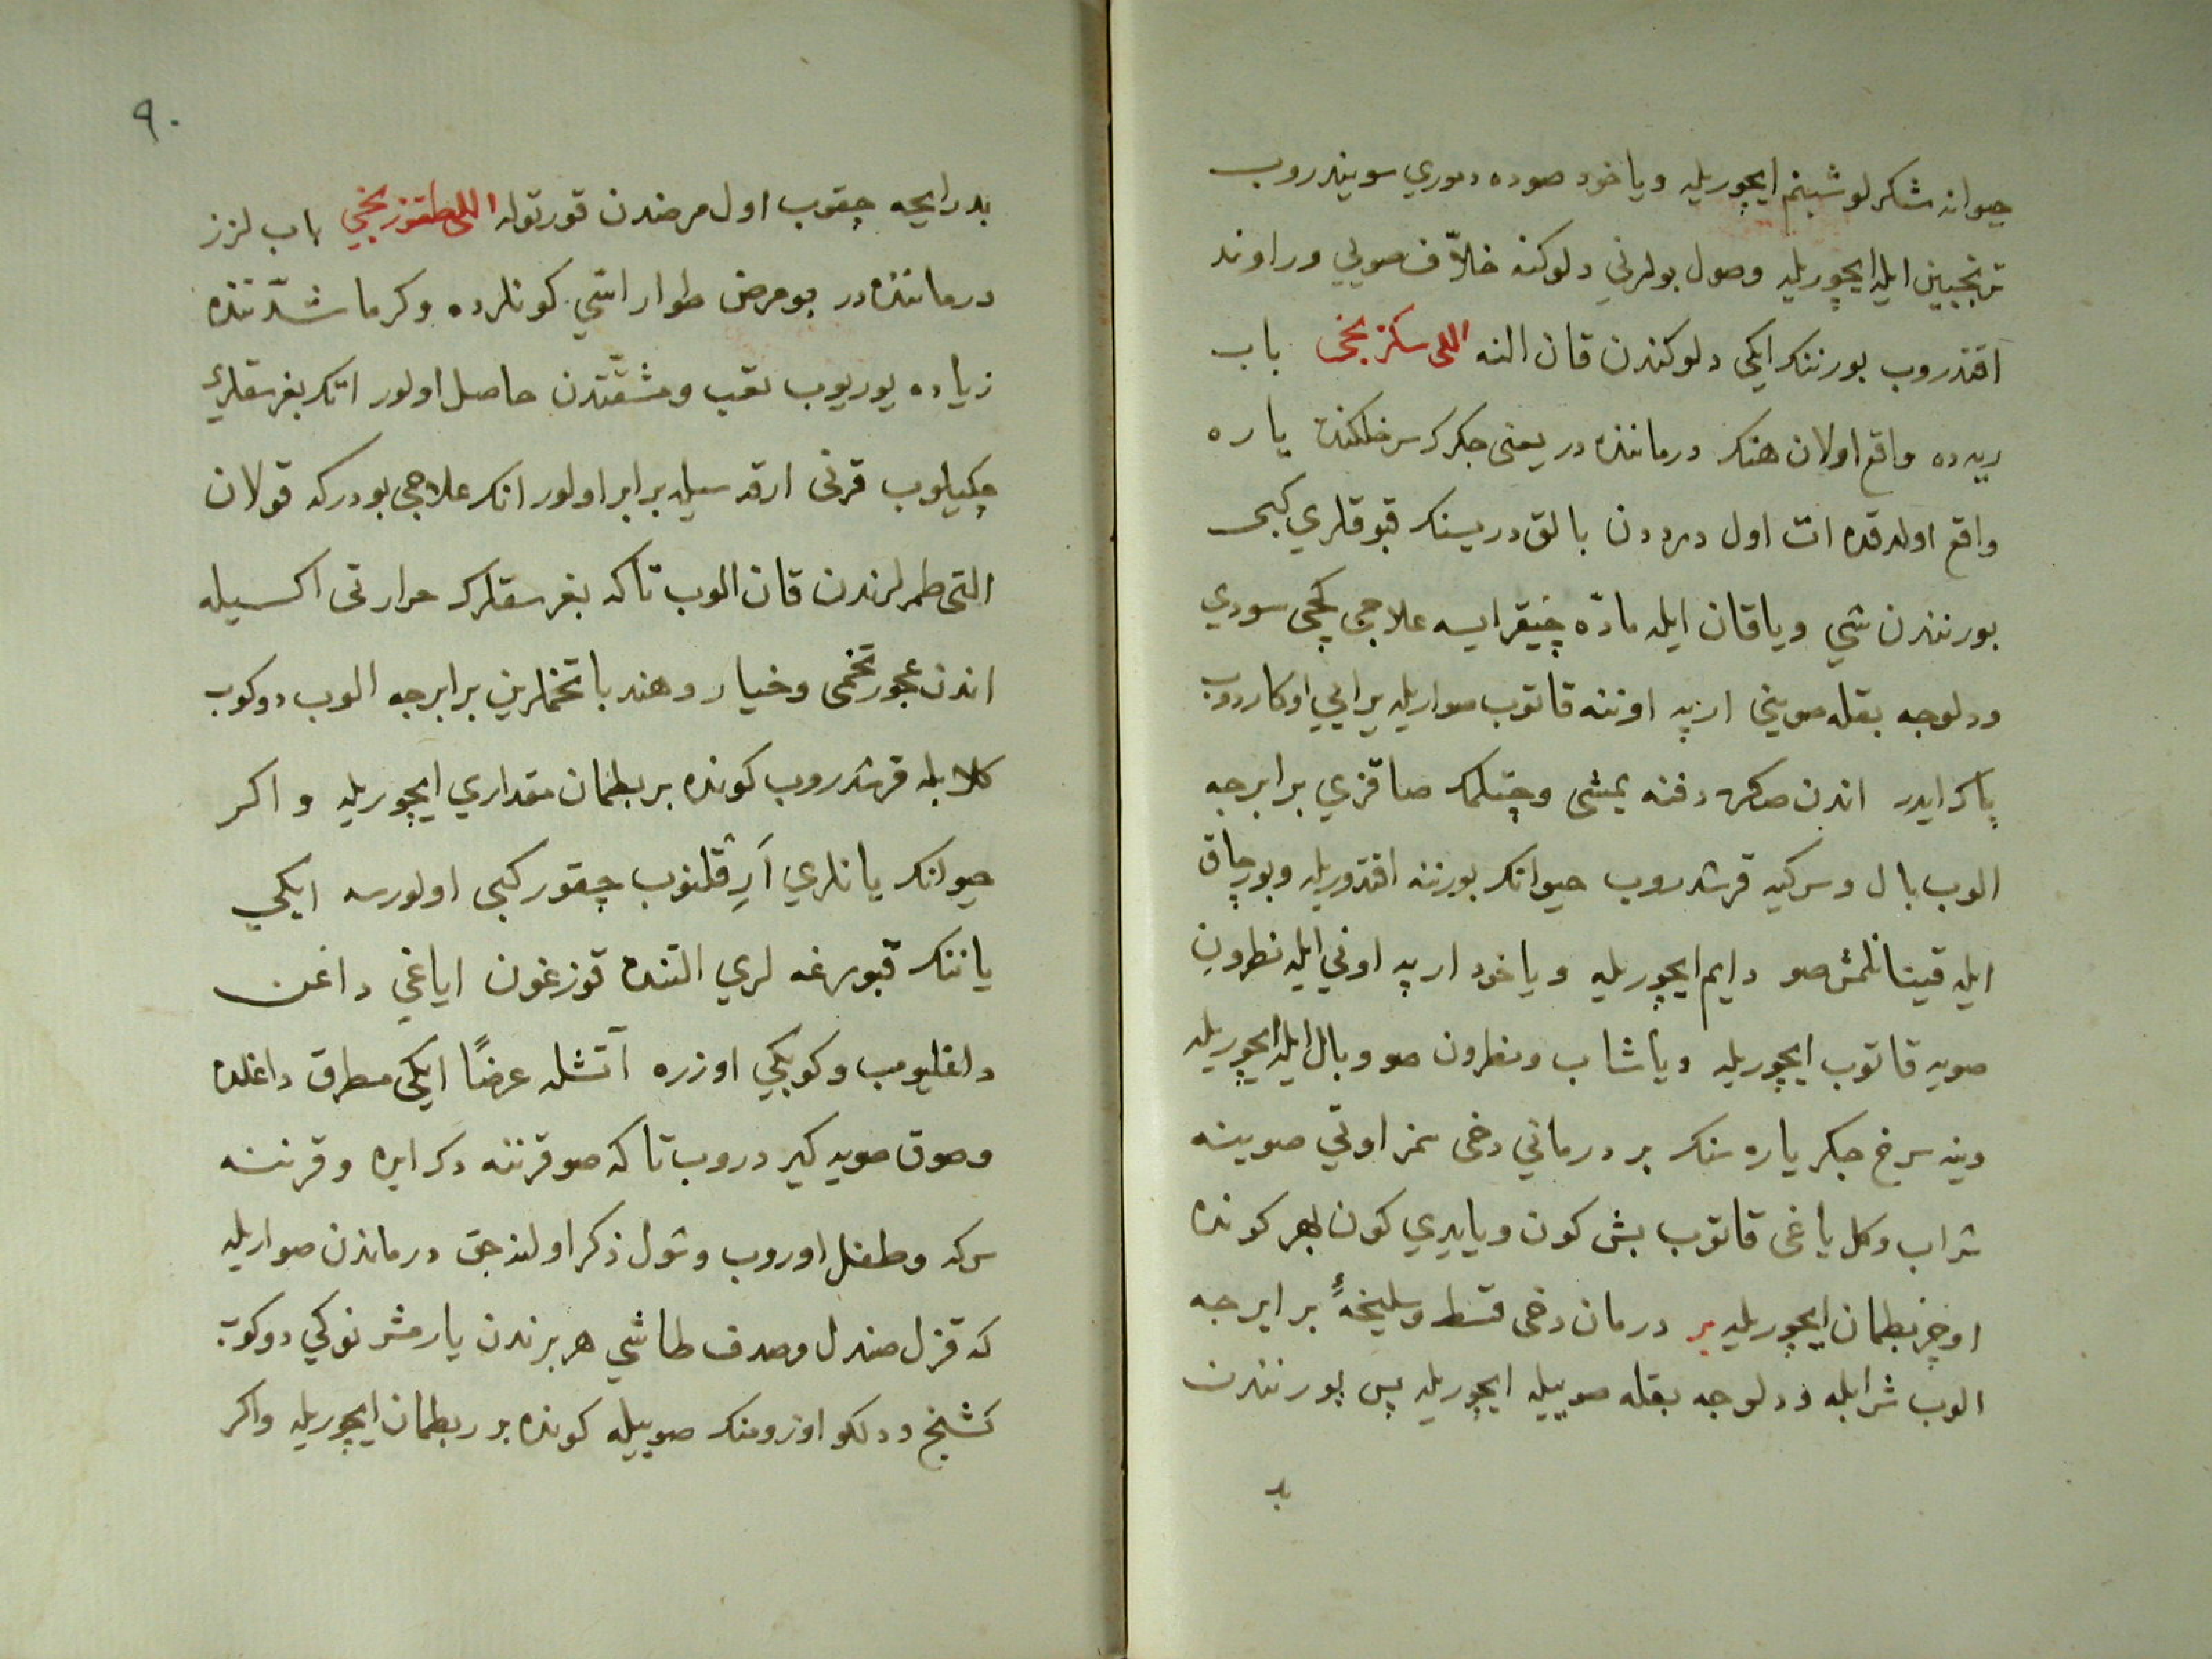 حیوانه شکرلو شبنم ایچوریله ویاخود صوده دموری سویندروب
ترنجبین ایله ایچوریله وصول بورنی دلوکنه خلاّف صویی وراوند
اقندروب بورننک ایکی دلوکندن قان النه اللی سکزنجی باب
ریه ده واقع اولان هنک درماننده در یعنی جکرک سرخلکنده یاره
واقع اولدقده ات اول درددن بالق دریسنک قبوقلری کبی
بورنندن شی ویاقان ایله مادّه چیقر ایسه علاجی کچی سودی
ودلوجه بقله صوینی ارپه اوننه قاتوب صواریله یرایی اوکاردوب
پاک ایدر اندن صکره دفنه یمشی وچتلمک صاقزی برابرجه
الوب بال وسرکیه قرشدروب حیوانک بورننه اقندوریله وبورچاق
ایله قینانلمش صو دایم ایچوریله ویاخود ارپه اونی ایله نطرون
صویه قاتوب ایچوریله ویا شاب ونطرون صو وبال ایله ایچوریله
وینه سرخ جکر یاره سنک بر درمانی دخی سمز اوتی صوینه
شراب وکل یاغی قاتوب بش کون ویا یدی کون هر کونده
اوچر بطمان ایچوریله بر درمان دخی قسط وسلیخهٔ برابرجه
الوب شرابله ودلوجه بقله صوییله ایچوریله پس بورنندن
بد
٩٠
بد رایحه چقوب اول مرضدن قورتوله اللی طقوزنجی باب لزز
درماننده در بو مرض طوار اسّی کونلرده وکرما شدّتنده
زیاده یوریوب تعب ومشقّتدن حاصل اولور انک بغرسقلری
چکیلوب قرنی ارقه سیله برابر اولور انک علاجی بودر که قولان
التی طمرلرندن قان الوب تا که بغرسقلرک حرارتی اکسیله
اندن عجور تخمی وخیار وهندبا تخملرین برابرجه الوب دوکوب
کلابله قرشدروب کونده بر بطمان مقداری ایچوریله واکر
حیوانک یانلری آرِقلنوب چقور کبی اولورسه ایکی
یاننک قبورغه لری التنده قوزغون ایاغی داغن
داغلیوب وکوبکی اوزره آتشله عرضًا ایکی مطرق داغلده
وصوق صویه کیردروب تا که صو قرننه دک ایره وقرننه
سرکه وطفل اوروب وشول ذکر اولنجق درماندن صواریله
که قزل صندل وصدف طاشی هر برندن یارمشر نوکی دوکوب
کشنج ودلکو اوزومنک صوییله کونده بر بطمان ایچوریله واکر